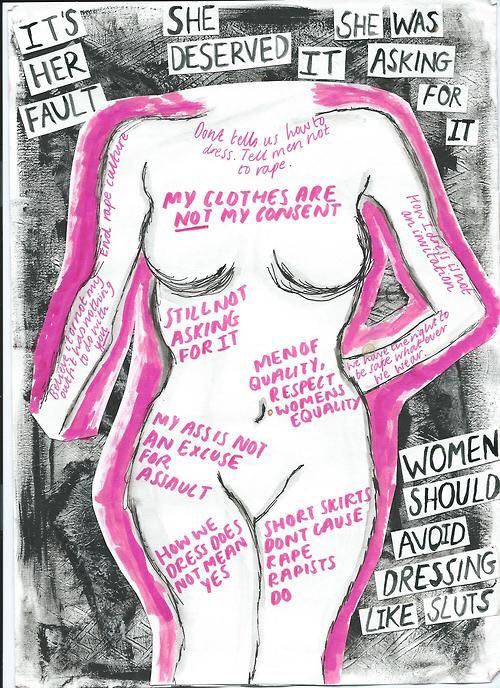 IT'S
HER
FAULT
SHE
DESERVED
IT
SHE WAS
ASKING
FOR
IT
Dont tells us how to
dress. Tell men not
to rape.
End rape culture
MY CLOTHES ARE
NOT MY CONSENT
How I dress is not
an invitation
Believe it or not my
outfit has nothing
to do with
you
STILL NOT
ASKING
FOR IT
we have the right to
be safe whatever
we wear.
MEN OF
QUALITY,
RESPECT
WOMENS
EQUALITY
MY ASS IS NOT
AN EXCUSE
FOR
ASSAULT
HOW WE
DRESS DOES
NOT MEAN
YES
SHORT SKIRTS
DONT CAUSE
RAPE
RAPISTS
DO
WOMEN
SHOULD
AVOID
DRESSING
LIKE SLUTS